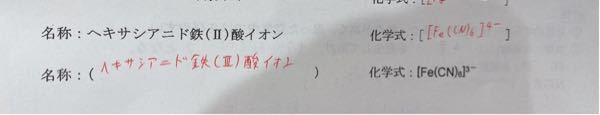 名称：ヘキサシアニド鉄(Ⅱ)酸イオン 化学式：[[Fe(CN)₆]⁴⁻ ]
名称：(ヘキサシアニド鉄(Ⅲ)酸イオン ) 化学式：[Fe(CN)₆]³⁻